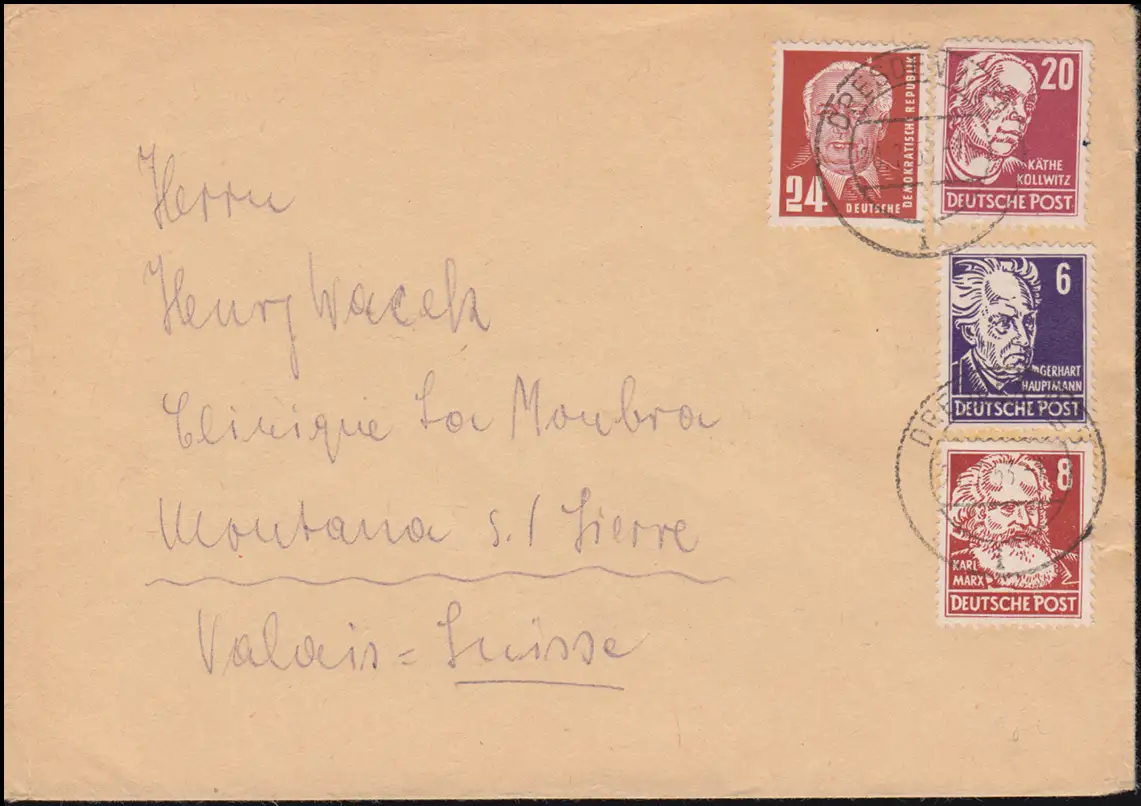 Herrn
Henry Wacek
Clinique La Moubra
Montana s./ Sierre
Valais = Suisse
24
DEUTSCHE
DEMOKRATISCHE REPUBLIK
20
KÄTHE
KOLLWITZ
DEUTSCHE POST
DRESDEN
6
GERHART
HAUPTMANN
DEUTSCHE POST
8
KARL
MARX
DEUTSCHE POST